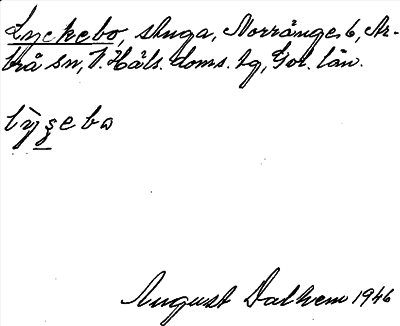 Lyckebo, stuga, Norränge 6, Ar-
brå sn, V. Häls. doms. tg, Gvl. län.
August Dalhem 1946